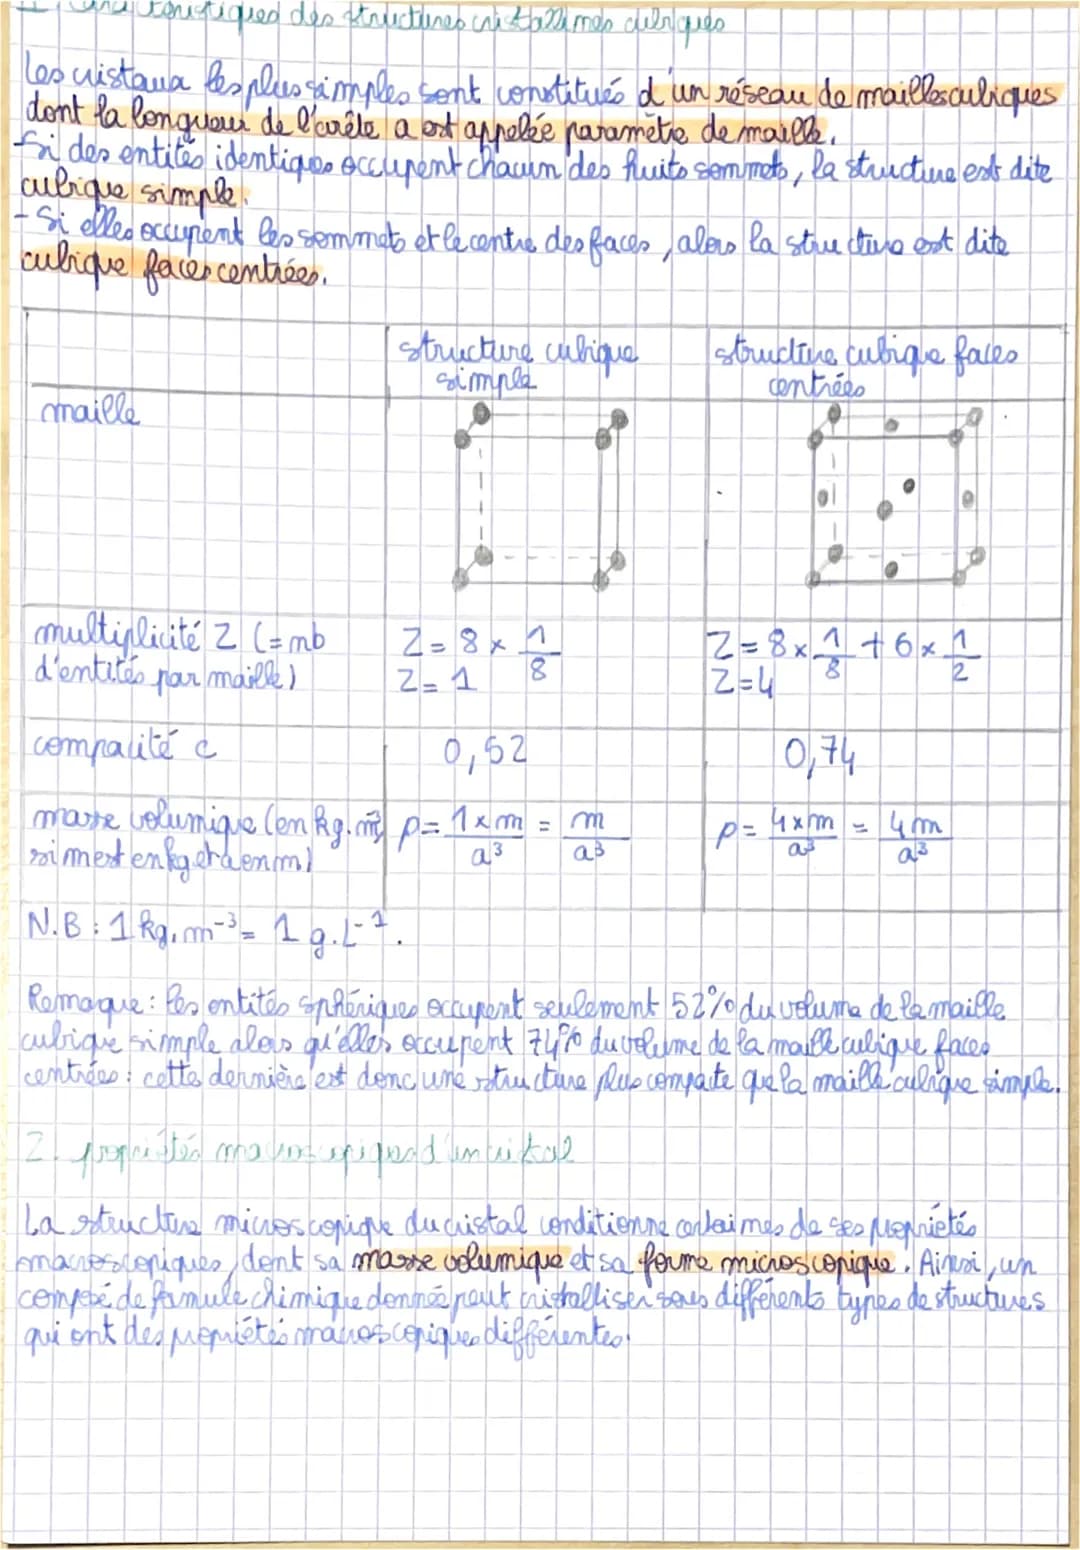 caractéristiques des structures cristallines cubiques
Les cristaux les plus simples sont constitués d'un réseau de mailles cubiques
dont la longueur de l'arête a est appelée paramètre de maille.
- Si des entités identiques occupent chacun des huits sommets, la structure est dite
cubique simple.
- Si elles occupent les sommets et le centre des faces, alors la structure est dite
cubique faces centrées.
structure cubique simple
structure cubique faces centrées
maille
multiplicité Z (= nb d'entités par maille)
Z = 8 × 1/8
Z = 1
Z = 8 × 1/8 + 6 × 1/2
Z = 4
compacité c
0,52
0,74
masse volumique (en kg.m⁻³ si m est en kg et a en m)
ρ = 1×m/a³ = m/a³
ρ = 4×m/a³ = 4m/a³
N.B : 1 kg.m⁻³ = 1 g.L⁻¹.
Remarque : les entités sphériques occupent seulement 52% du volume de la maille
cubique simple alors qu'elles occupent 74% du volume de la maille cubique faces
centrées : cette dernière est donc une structure plus compacte que la maille cubique simple.
2. propriétés macroscopiques d'un cristal
La structure microscopique du cristal conditionne certaines de ses propriétés
macroscopiques, dont sa masse volumique et sa forme microscopique. Ainsi, un
composé de formule chimique donnée peut cristalliser sous différents types de structures
qui ont des propriétés macroscopiques différentes.